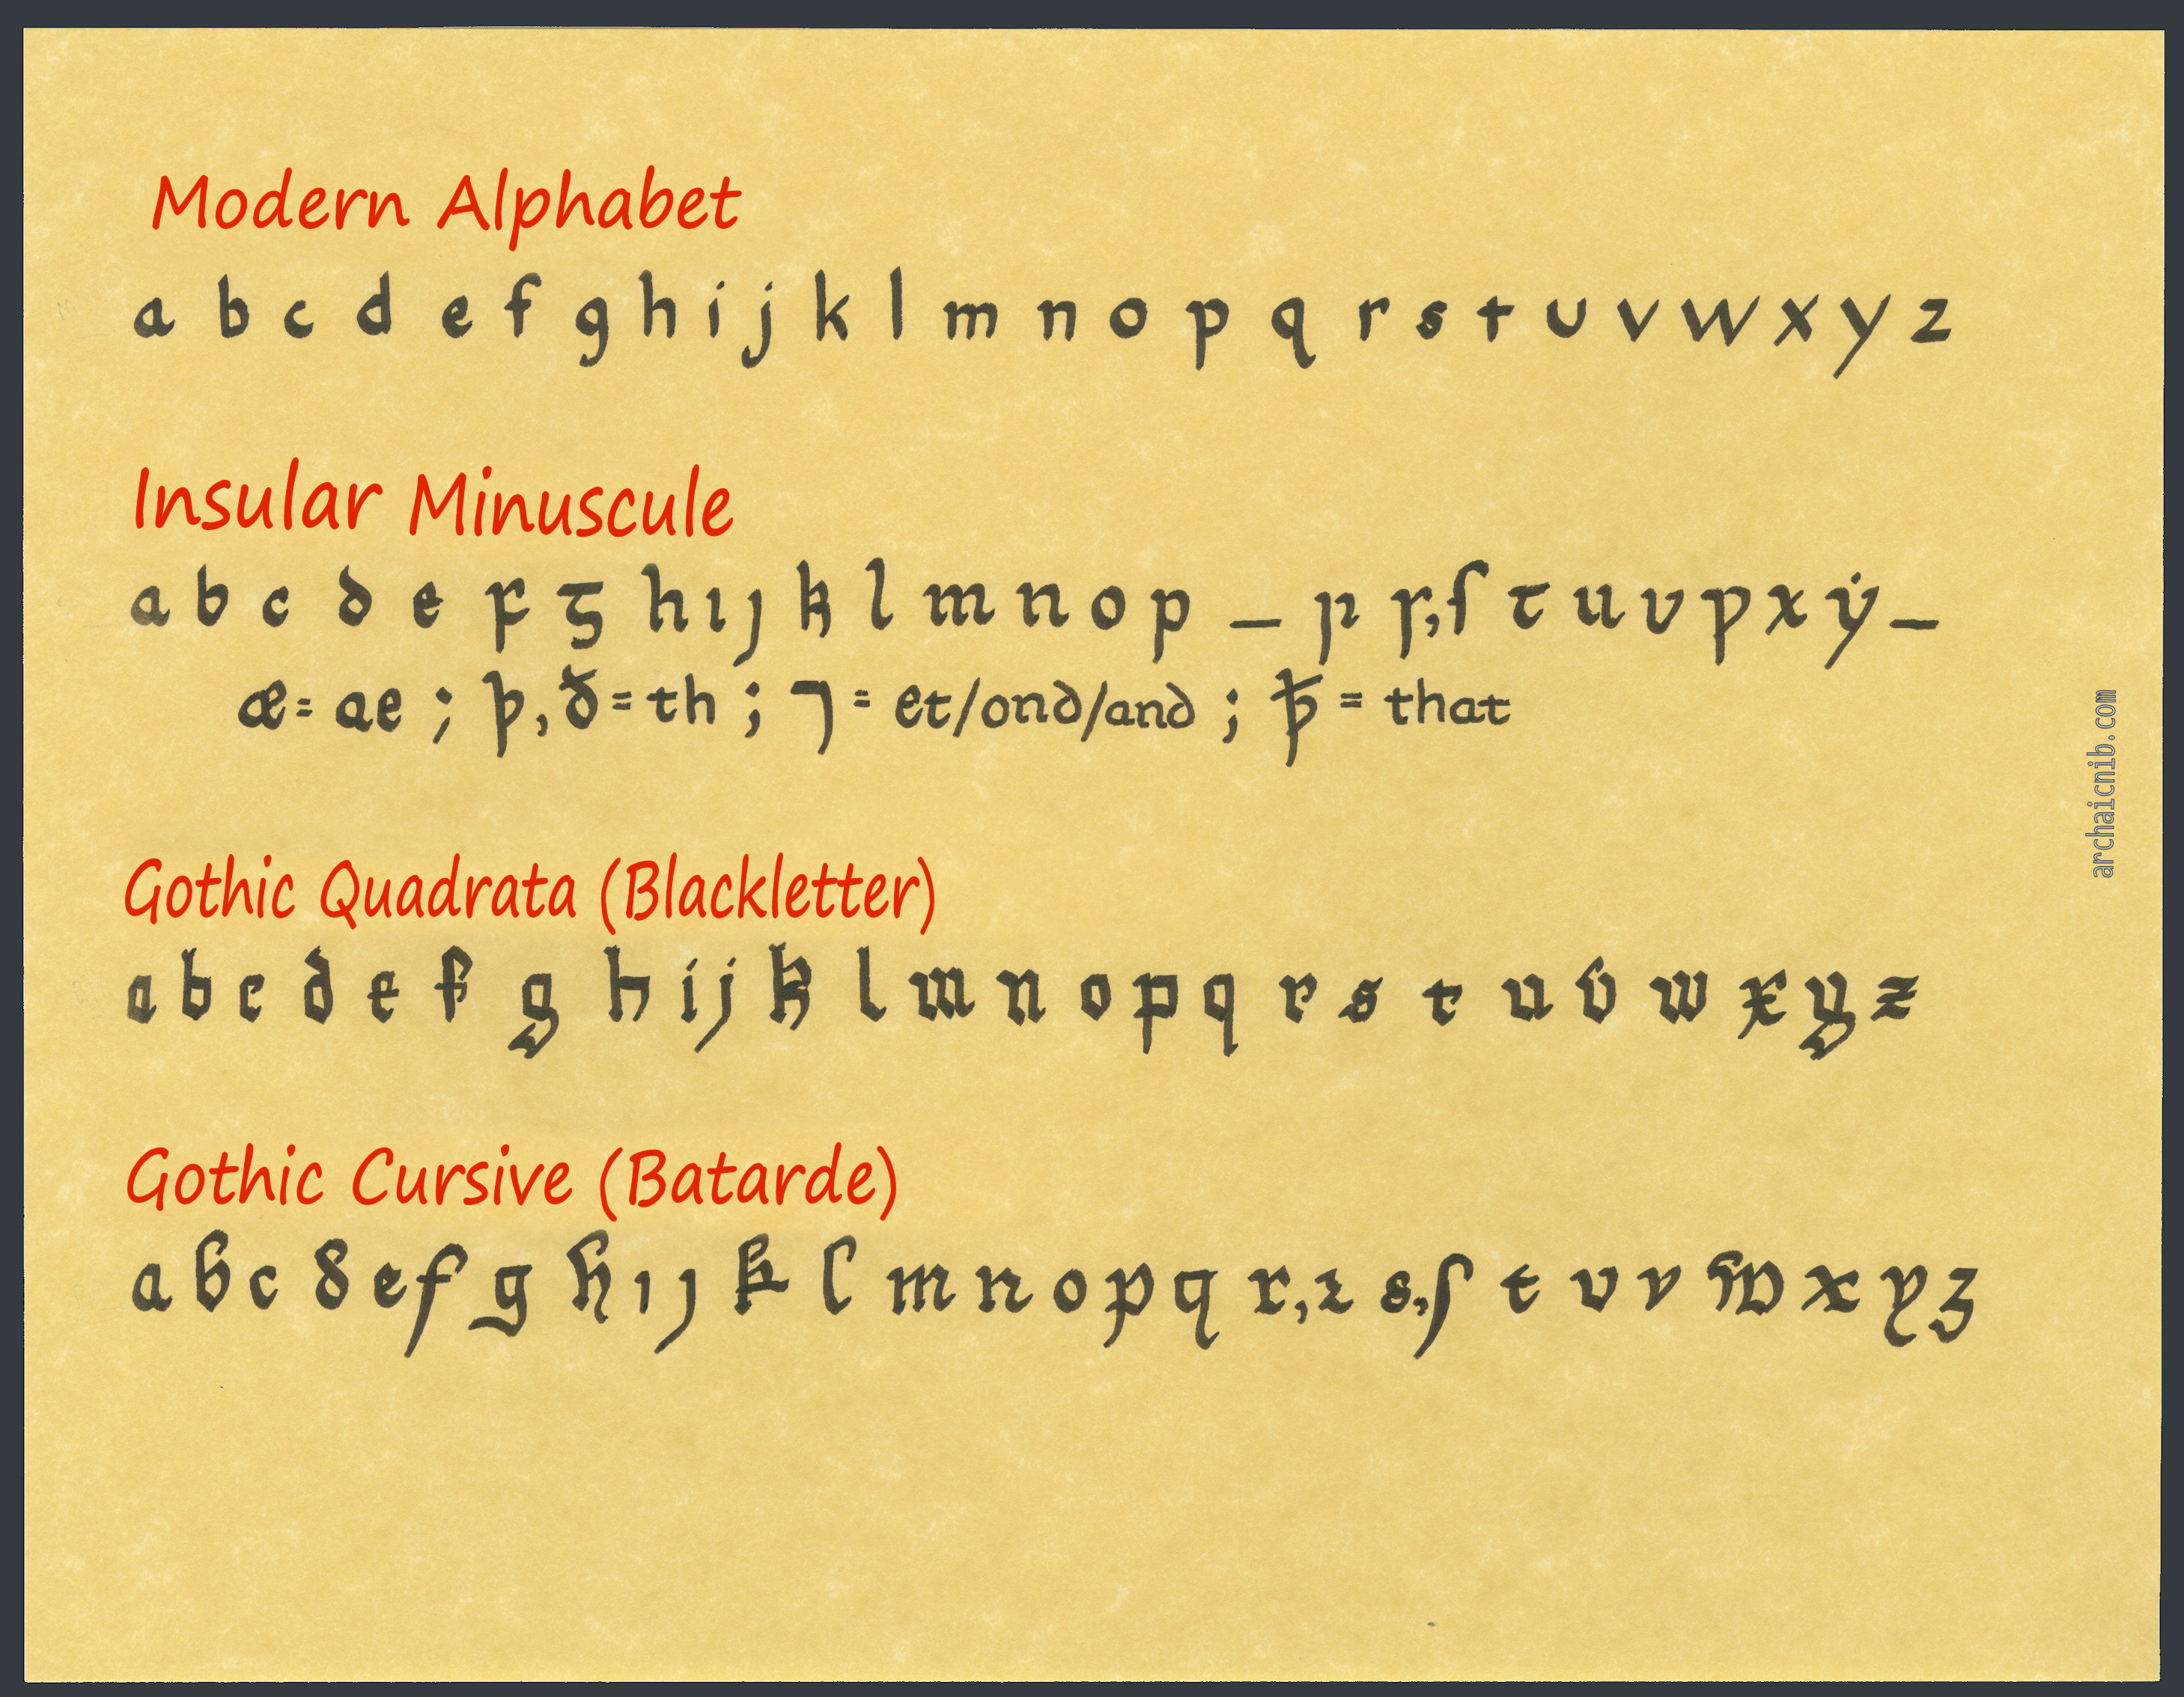 Modern Alphabet
a b c d e f g h i j k l m n o p q r s t u v w x y z
Insular Minuscule
a b c ꝺ e ꝼ ᵹ h ı ȷ k l m n o p _ ꞃ ꞅ,ſ ꞇ u v ƿ x ẏ _
æ = ae ; þ, ð = th ; ⁊ = et/onꝺ/anꝺ ; ꝥ = that
Gothic Quadrata (Blackletter)
a b c d e f g h i j k l m n o p q r s t u v w x y z
Gothic Cursive (Batarde)
a b c d e f g h ı ȷ k l m n o p q r,ꝛ s,ſ t v v w x y z
archaicnib.com